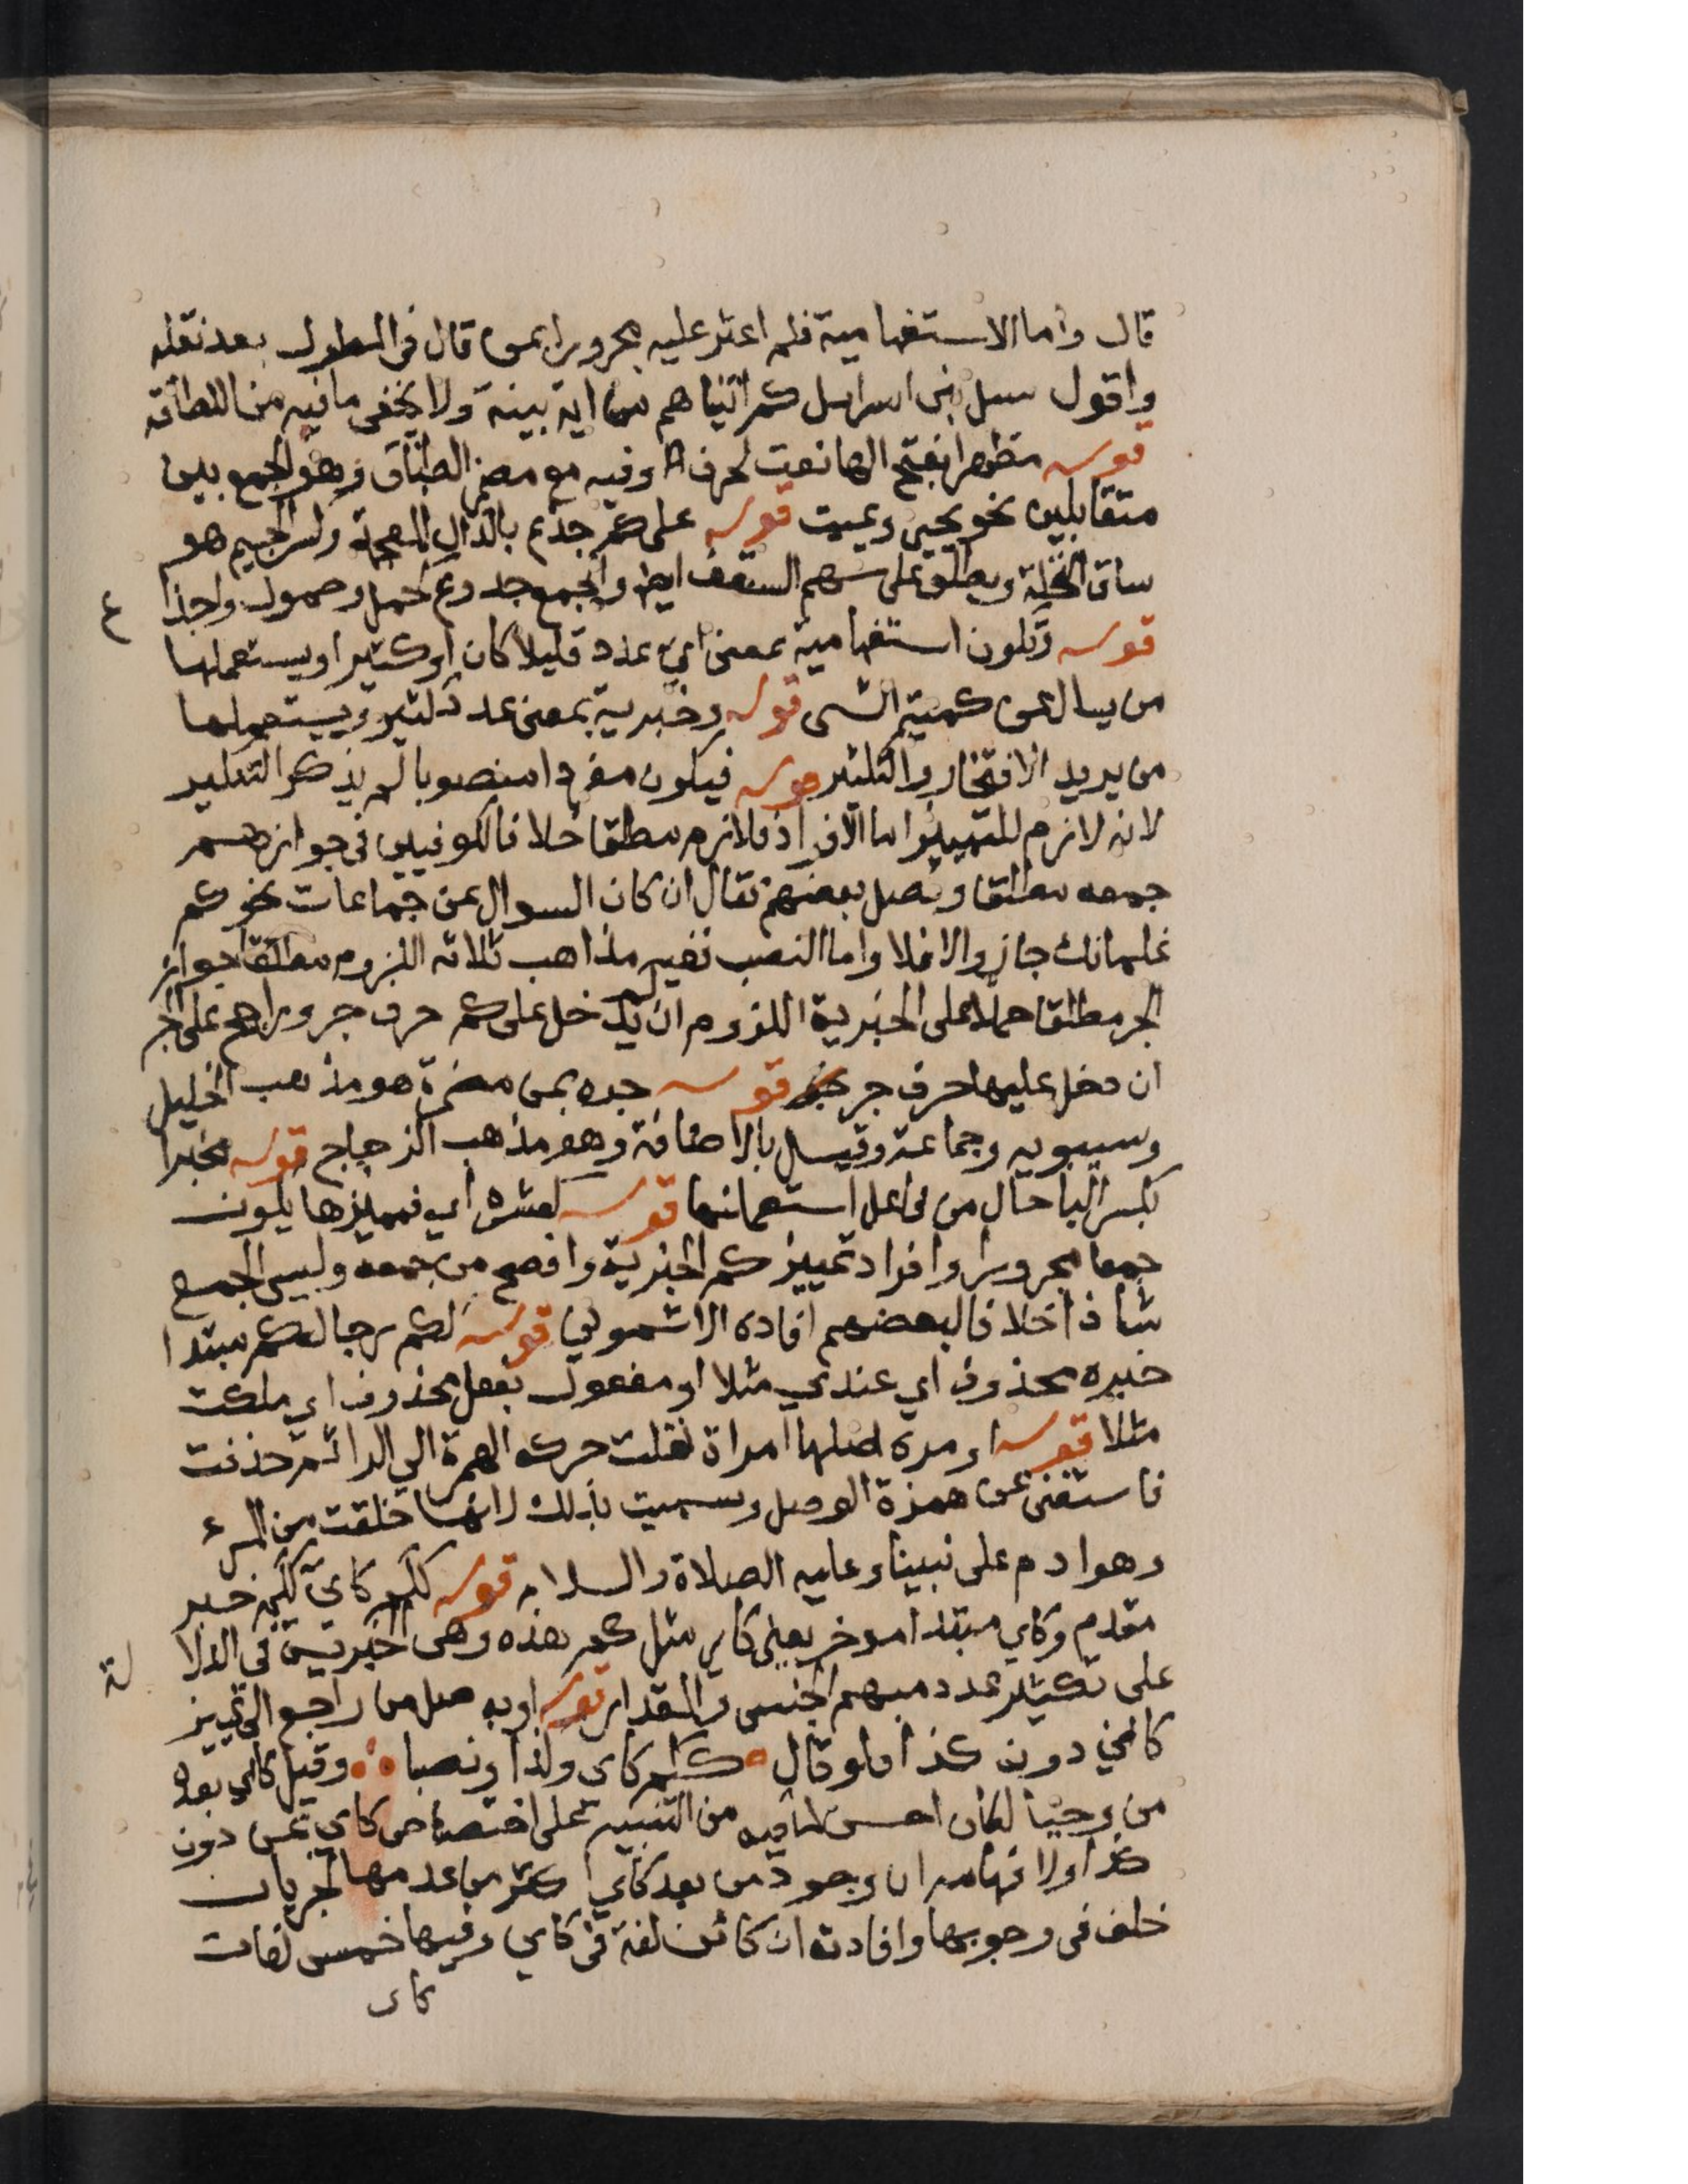 قال واما الاستفهامية فلم اعثر عليه مجرورا بمن قال في المطول بعد نقله
واقول سل بنى اسراىيل كم اتيناهم من اية بينة ولا يخفى ما فيه من اللطافة
قوله مظهرا بفتح الها نعت لحرف وفيه مع مضمر الطباق وهو الجمع بين
متقابلين نحو يحيى ويميت قوله على كم جذع بالذال المعجمة وكسر الجيم هو
ساق النخلة ويطلق على سهم السقف ايضا والجمع جذوع كحمل وحمول واجذا
ع
قوله وتكون استفهامية بمعنى اي عدد قليلا كان او كثيرا ويستعملها
من يسال عن كمية الشى قوله وخبرية بمعنى عدد كثير ويستعملها
من يريد الافتخار والتكثير قوله فيكون مفردا منصوبا لم يذكر التنكير
لانه لازم للتمييز واما الافراد فلازم مطلقا خلافا للكوفيين في جوازهم
جمعه مطلقا وفصل بعضهم فقال ان كان السوال عن جماعات نحو كم
غلمانك جاز والا فلا واما النصب ففيه مذاهب ثلاثه اللزوم مطلقا جواز
الجر مطلقا حملا على الخبرية اللزوم ان لم يدخل على كم حرف جر وراجح على الجر
ان دخل عليها حرف جر قوله جره بمن مضمرة هو مذهب الخليل
وسيبويه وجماعة وقيل بالاضافة وهو مذهب الزجاج قوله مخبرا
بكسر البا حال من فاعل استعملنها قوله كعشرة اي فمميزها يكون
جمعا مجرورا وافراد تمييز كم الخبرية وافصح من جمعه وليس الجمع
شاذا خلافا لبعضهم افاده الاشموني قوله لكم رجال كم مبتدا
خبره محذوف اي عندي مثلا او مفعول بفعل محذوف اي ملكت
مثلا قوله او مره اصلها امراة نقلت حركه الهمزة الي الرا ثم حذفت
فاستغنى عن همزة الوصل وسميت بذلك لانها خلقت من المرء
وهو ادم على نبينا وعليه الصلاة والسلام قوله ككم كاي ككم خبر
مقدم وكاي مبتدا موخر يعني كاي مثل كم هذه وهى الخبرية في الدلا
لة
على تكثير عدد مبهم الجنس والمقدار قوله او به صل من راجع الى تمييز
كاي دون كذا فلو قال ككم كاي وكذا ونصبا وقيل كاي بعده
من وجبا لكان احسن لما فيه من التنبيه على اختصاص كاي بمن دون
كذا ولافهامه ان وجود من بعد كاي اكثر من عدمها لجريان
خلف في وجوبها وافادة ان كائن لغة في كاي وفيها خمس لغات
كاى